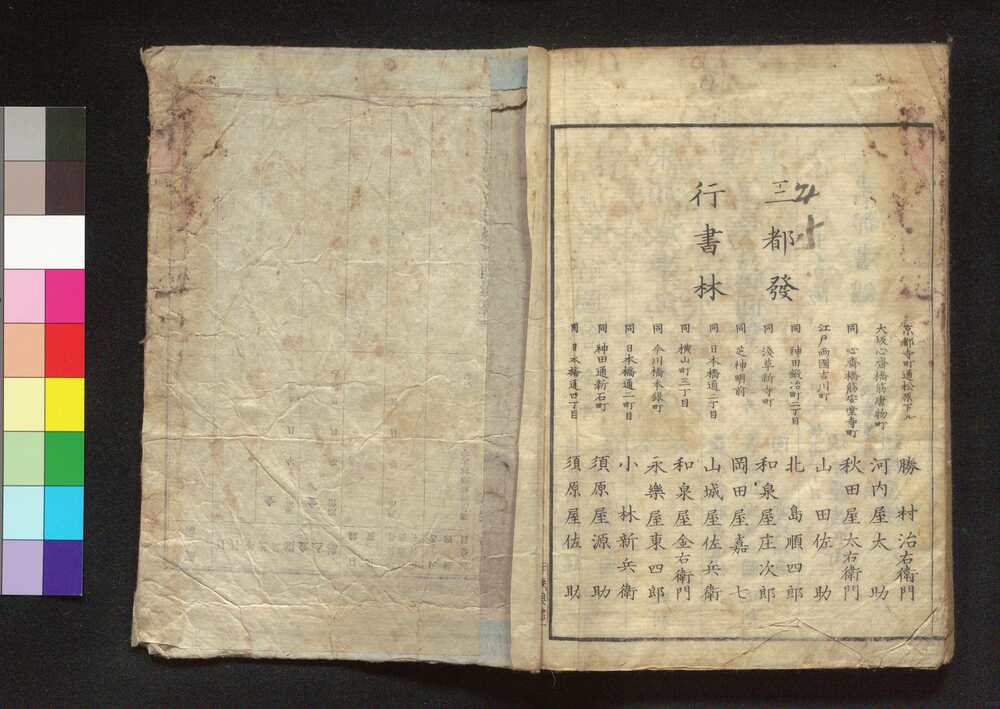 三都發
行書林
京都寺町通松原下ル 勝村治右衛門
大坂心齋橋筋唐物町 河内屋太助
同 心齋橋筋安堂寺町 秋田屋太右衛門
江戸両國吉川町 山田佐助
同 神田鍛冶町二丁目 北島順四郎
同 浅草新寺町 和泉屋庄次郎
同 芝神明前 岡田屋嘉七
同 日本橋通二丁目 山城屋佐兵衛
同 横山町三丁目 和泉屋金右衛門
同 今川橋本銀町 永樂屋東四郎
同 日本橋通二町目 小林新兵衛
同 神田通新石町 須原屋源助
同 日本橋通四丁目 須原屋佐助